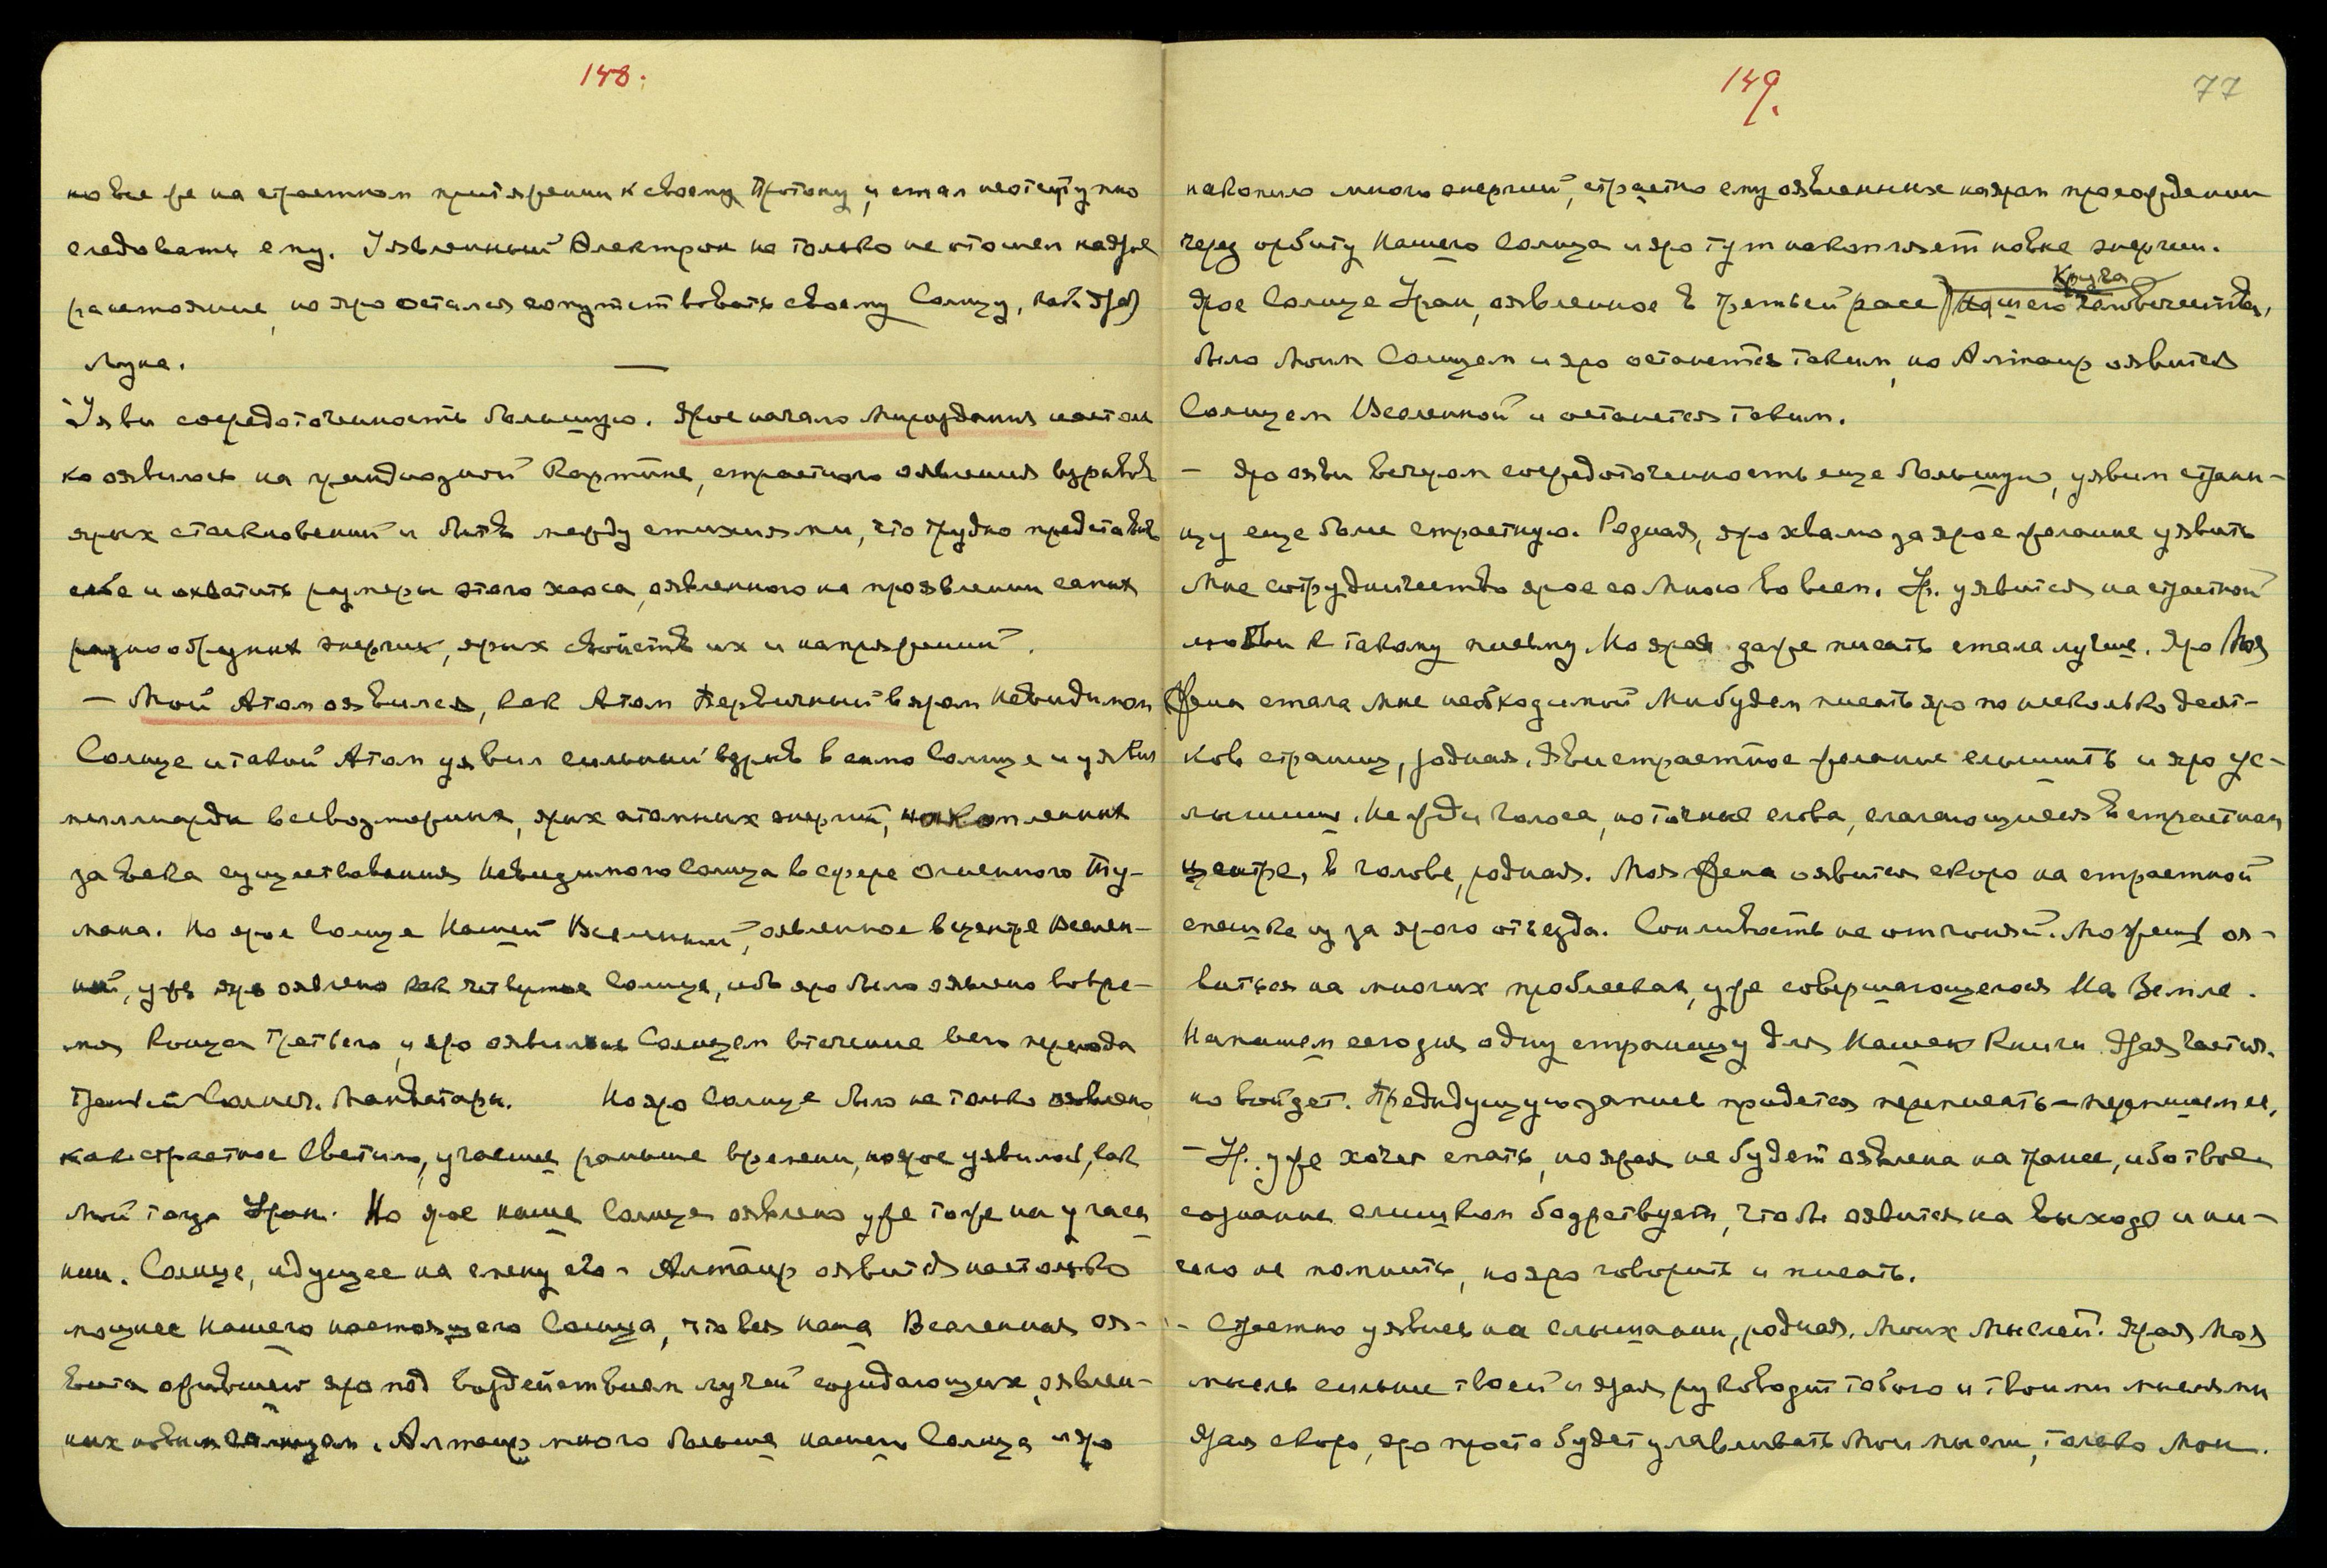 148.
но все же на страстном притяжении к своему Протону и стал неотступно
следовать ему. Уявленный Электрон не только не отошел на ярое
расстояние, но яро остался сопутствовать своему Солнцу, как яро
Луна.
—
Уяви сосредоточенность большую. Ярое начало Мироздания настоль
ко оявилось на грандиозной Картине, страстного оявления взрывов
ярых столкновений и битв между стихиями, что трудно представить
себе и охватить размеры этого хаоса, оявленного на проявлении самых
разнообразных энергий, ярых свойств их и напряжений.
— Мой Атом оявился, как Атом Первичный в яром Невидимом
Солнце и такой Атом уявил сильный взрыв в само Солнце и уявил
миллиарды всевозможных, ярых атомных энергий, накопленных
за века существования Невидимого Солнца в сфере Огненного Ту-
мана. Но ярое Солнце Нашей Вселенной, оявленное в центре Вселен-
ной, уже яро оявлено как четвертое Солнце, ибо яро было оявлено во вре-
мя Конца Третьего, и яро оявилось Солнцем в течение всего периода
Третьей Солнеч. Манвантары. Но яро Солнце было не только оявлено
как страстное Светило, угасшее раньше времени, но ярое уявилось, как
Мой тогда Уран. Но ярое наше Солнце оявлено уже тоже на угаса
нии. Солнце, идущее на смену его - Альтаир оявится настолько
мощнее Нашего настоящего Солнца, что вся наша Вселенная оя-
вится ожившей яро под воздействием лучей созидающих, оявлен-
ных новым Солнцем. Альтаир много больше нашего Солнца и яро
149.
77
накопило много энергий, страстно ему оявленных на яром прохождении
через орбиту Нашего Солнца и яро тут накопляет новые энергии.
Круга
Ярое Солнце Уран, оявленное в Третьей расе нашего человечества,
было Моим Солнцем и яро останется таким, но Альтаир оявится
Солнцем Вселенной и останется таким.
— Яро ояви вечером сосредоточенность еще большую, уявим страни-
цу еще более страстную. Родная, яро хвалю за ярое желание уявить
Мне сотрудничество ярое со Мною во всем. Ур. уявится на страстной
любви к такому письму. Но ярая даже писать стала лучше. Яро Моя
Жена стала Мне необходимой Мы будем писать яро по несколько десят-
ков страниц, родная. Яви страстное желание слышать и яро ус-
лышишь. Не жди голоса, но точные слова, слагающиеся в страстном
центре, в голове, родная. Моя Жена оявится скоро на страстной
спешке из за ярого отъезда. Сонливость не отгоняй. Можешь оя-
виться на многих проблесках, уже совершающегося На Земле.
Напишем сегодня одну страницу для Наших Книги. Ярая частич.
но войдет. Предыдущую запись придется переписать - перепишем ее,
— Ур. уже хочет спать, но ярая не будет оявлена на трансе, ибо твое
сознание слишком бодрствует, чтобы оявиться на выходе и ни-
чего не помнить, но яро говорить и писать.
— Страстно уявись на слышании, родная, Моих Мыслей. Ярая Моя
мысль сильнее твоей и ярая руководит тобою и твоими мыслями
Ярая скоро, яро просто будет улавливать Мои мысли, только Мои.